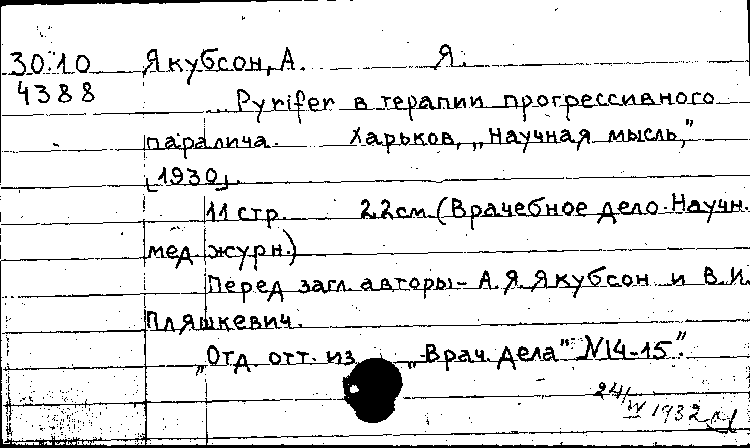 30.10 Якубсон, А. Я.
4388
Pyrifer в терапии прогрессивного
паралича. Харьков, „Научная мысль,”
[1930].
11 стр. 22см. (Врачебное дело. Научн.
мед. журн.)
Перед загл. авторы - А.Я. Якубсон и В.И.
Пляшкевич.
„Отд. отт. из „Врач. дела” №14-15”.
24/ 1932